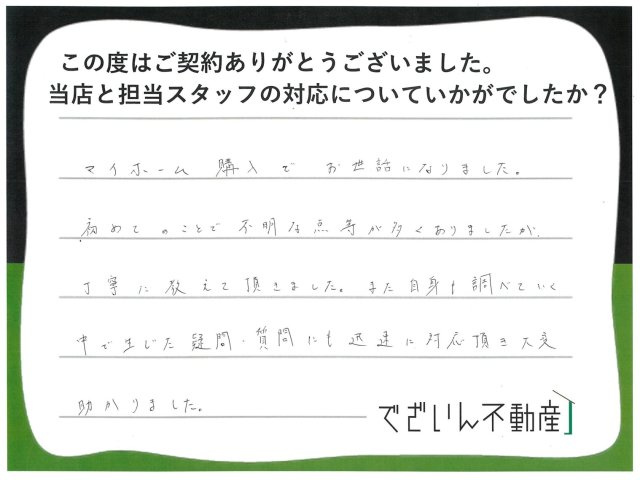 この度はご契約ありがとうございました。
当店と担当スタッフの対応についていかがでしたか？
マイホーム購入でお世話になりました。
初めてのことで不明な点等が多くありましたが、
丁寧に教えて頂きました。また自身も調べていく
中で生じた疑問・質問にも迅速に対応頂き大変
助かりました。
でざいん不動産